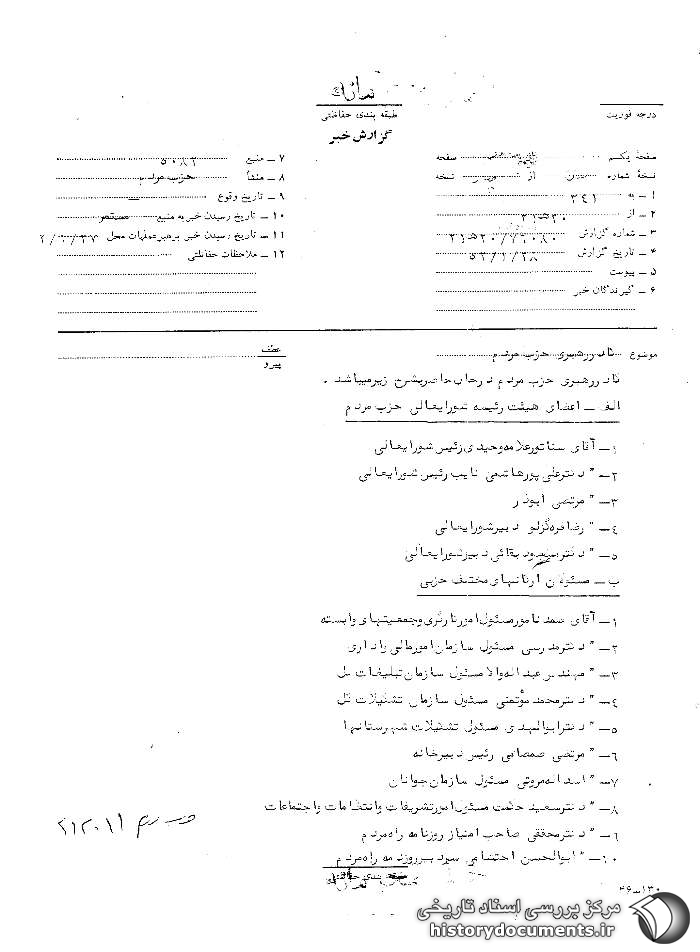 ساواك
طبقه بندی حفاظتی
گزارش خبر
درجه فوریت
صفحهٔ یکم صفحه
نسخهٔ شماره از نسخه
۱ – به ۳۴۱
۲ – از ۲۱ه۲۰
۳ – شماره گزارش
۴ – تاریخ گزارش
۵ – پیوست
۶ – گیرندگان خبر
۷ – منبع ۵۰۸۲
۸ – منشأ حزب مردم
۹ – تاریخ وقوع
۱۰ – تاریخ رسیدن خبر به منبع مستمر
۱۱ – تاریخ رسیدن خبر برهبر عملیات محل
۱۲ – ملاحظات حفاظتی
موضوع کادر رهبری حزب مردم
عطف
پیرو
کادر رهبری حزب مردم در حال حاضر بشرح زیر میباشد .
الف – اعضای هیئت رئیسه شورایعالی حزب مردم
۱– آقای سناتور علامه وحیدی رئیس شورایعالی
۲– " دکتر علی پورهاشمی نایب رئیس شورایعالی
۳– " مرتضی ابوذر
۴– " رضا قره گزلو دبیر شورایعالی
۵– " دکتر بقائی دبیر شورایعالی
ب – مسئولان ارگانهای مختلف حزبی
۱– آقای صمد نامور مسئول امور کارگری و جمعیتهای وابسته
۲– " دکتر مدرسی مسئول سازمان امور مالی و اداری
۳– " مهندس عبداله والا مسئول سازمان تبلیغات کل
۴– " دکتر محمد مؤتمنی مسئول سازمان تشکیلات کل
۵– " دکتر ابوالهدی مسئول تشکیلات شهرستانها
۶– " مرتضی صمصامی رئیس دبیرخانه
۷– " اسداله مروتی مسئول سازمان جوانان
۸– " دکتر سعید حکمت مسئول امور تشریفات و انتظامات و اجتماعات
۹– " دکتر محققی صاحب امتیاز روزنامه راه مردم
۱۰– " ابوالحسن احتشامی سردبیر روزنامه راه مردم
طبقه بندی حفاظتی
۴۶–۱۳۰
مرکز بررسی اسناد تاریخی
historydocuments.ir